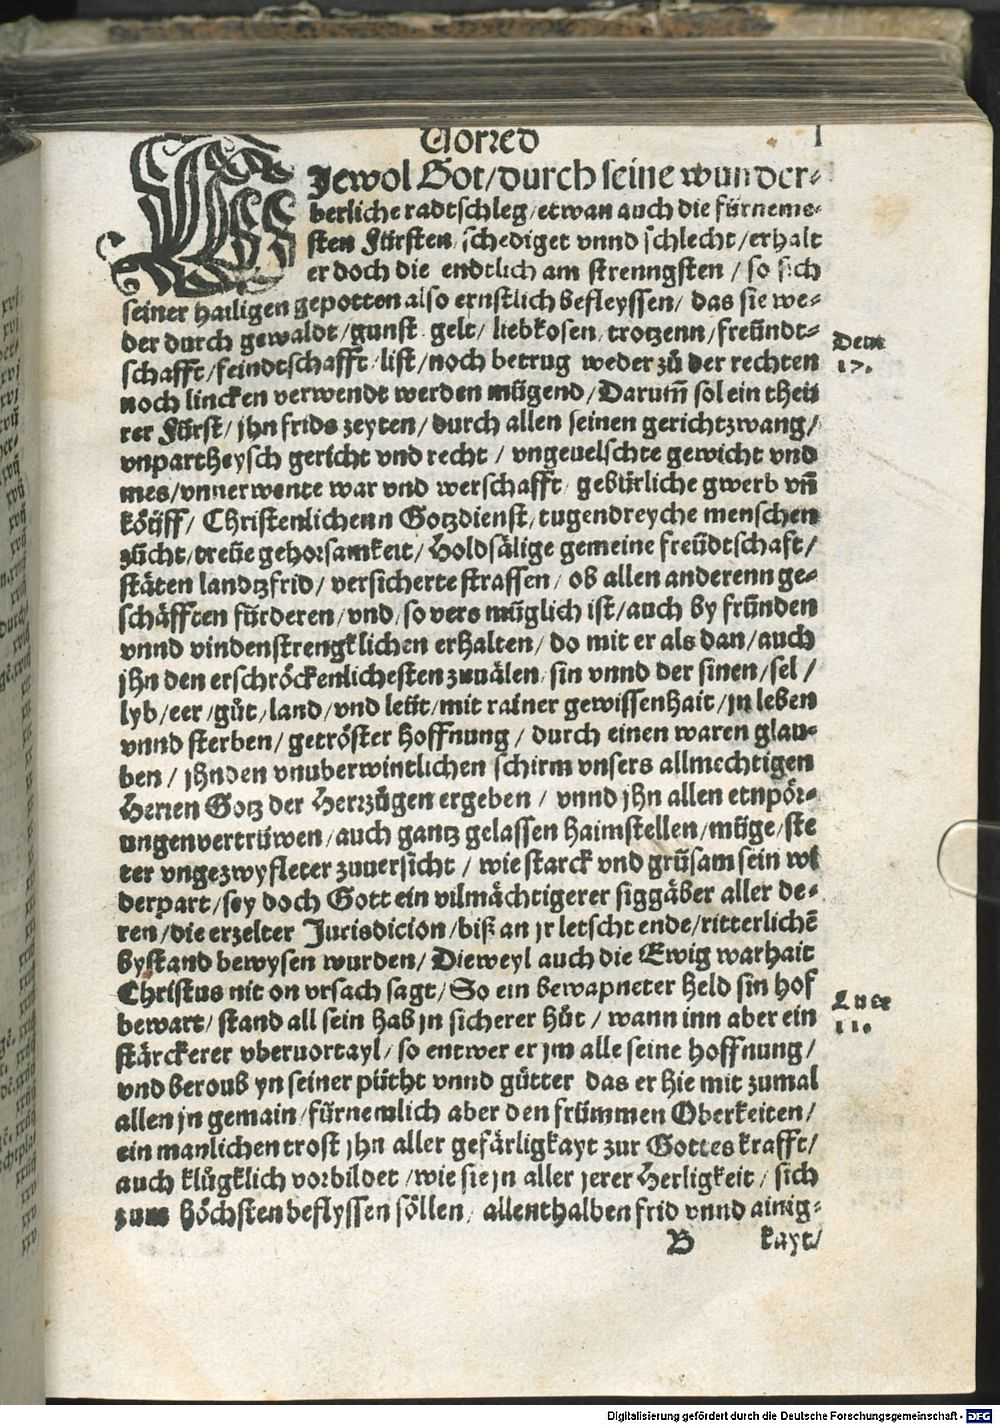 Vorred
I
WJewol Got/durch seine wunder-
berliche radtschleg/etwan auch die fürneme-
sten Fürsten/schediget vnnd schlecht/erhalt
er doch die endtlich am strenngsten/so sich
seiner hailigen gepotten also ernstlich befleyssen/das sie we-
der durch gewaldt/gunst gelt/liebkosen/trotzenn/freündt-
schafft/feindtschafft/list/noch betrug weder zů der rechten
noch lincken verwendt werden mügend/Darum̃ sol ein theü
rer Fürst/jhn frids zeyten/durch allen seinen gerichtzwang/
vnpartheysch gericht vnd recht/vngeuelschte gewicht vnd
mes/vnuerwente war vnd werschafft gebürliche gwerb vñ
köüff/Christenlichenn Gotzdienst/tugendreyche menschen
zücht/treüe gehorsamkeit/Holdsälige gemeine freüdtschaft/
stäten landtzfrid/versicherte strassen/ob allen anderenn ge-
schäfften fürderen/vnd/so vers müglich ist/auch by fründen
vnnd vindenstrengklichen erhalten/do mit er als dan/auch
jhn den erschröckenlichesten zuuälen/sin vnnd der sinen/sel/
lyb/eer/gůt/land/vnd leüt/mit rainer gewissenhait/jn leben
vnnd sterben/getröster hoffnung/durch einen waren glau-
ben/jhnden vnuberwintlichen schirm vnsers allmechtigen
Herren Gotz der Herrzügen ergeben/vnnd jhn allen etnpör-
ungenvertrüwen/auch gantz gelassen haimstellen/müge/ste
ter vngezwyfleter zuuersicht/wie starck vnd grüsam sein wi
derpart/sey doch Gott ein vilmächtigerer siggäber aller de-
ren/die erzelter Jurisdicion/biß an jr letscht ende/ritterlichẽ
bystand bewysen wurden/Dieweyl auch die Ewig warhait
Christus nit on vrsach sagt/So ein bewapneter held sin hof
bewart/stand all sein hab jn sicherer hůt/wann inn aber ein
stärckerer vberuortayl/so entwer er jm alle seine hoffnung/
vnd beroub yn seiner pütht vnnd gütter das er hie mit zumal
allen jn gemain/fürnemlich aber den frümmen Oberkeiten/
ein manlichen trost jhn aller gefärligkayt zur Gottes krafft/
auch klůgklich vorbildet/wie sie jn aller jerer Herligkeit/sich
zum höchsten beflyssen söllen/allenthalben frid vnnd ainig-
B kayt/
Deut
17.
Luce
11.
Digitalisierung gefördert durch die Deutsche Forschungsgemeinschaft - DFG